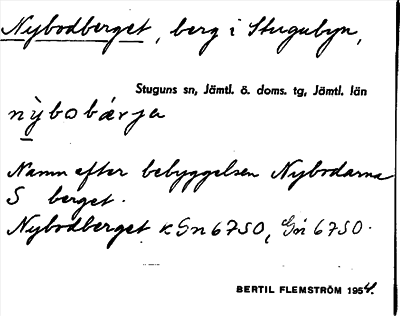 Nybodberget, berg i Stugubyn,
Stuguns sn, Jämtl. ö. doms. tg, Jämtl. län
nỳbobærja
Namn efter bebyggelsen Nybodarna
S berget.
Nybodberget k Gn 6750, Gn 6750.
BERTIL FLEMSTRÖM 1954.